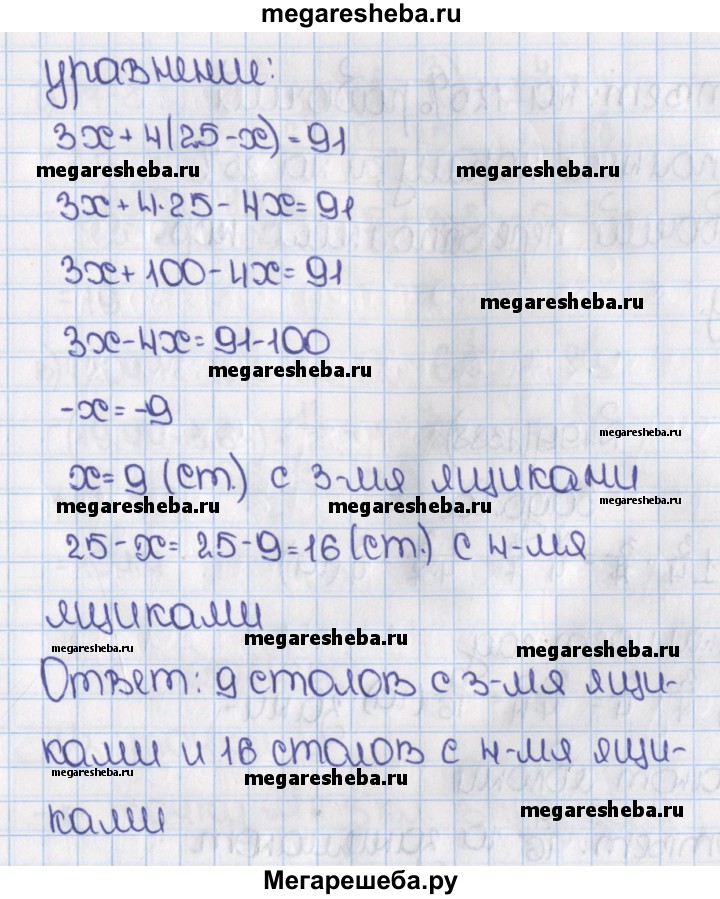 megaresheba.ru
уравнение:
3x + 4(25 - x) = 91
megaresheba.ru megaresheba.ru
3x + 4·25 - 4x = 91
3x + 100 - 4x = 91
megaresheba.ru
3x - 4x = 91 - 100
megaresheba.ru
-x = -9
megaresheba.ru
x = 9 (ст.) с 3-мя ящиками
megaresheba.ru megaresheba.ru megaresheba.ru
25 - x = 25 - 9 = 16 (ст.) с 4-мя
ящиками
megaresheba.ru megaresheba.ru megaresheba.ru
Ответ: 9 столов с 3-мя ящи-
ками и 16 столов с 4-мя ящи-
megaresheba.ru megaresheba.ru
ками
megaresheba.ru
Мегарешеба.ру